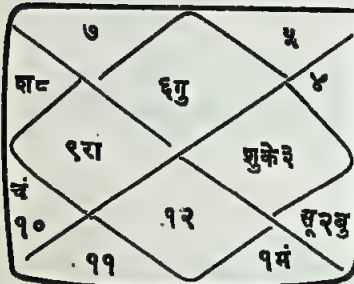 ७ ५
श८ ६गु ४
९रा शुके३
चं
१० १२ सू२बु
११ १मं